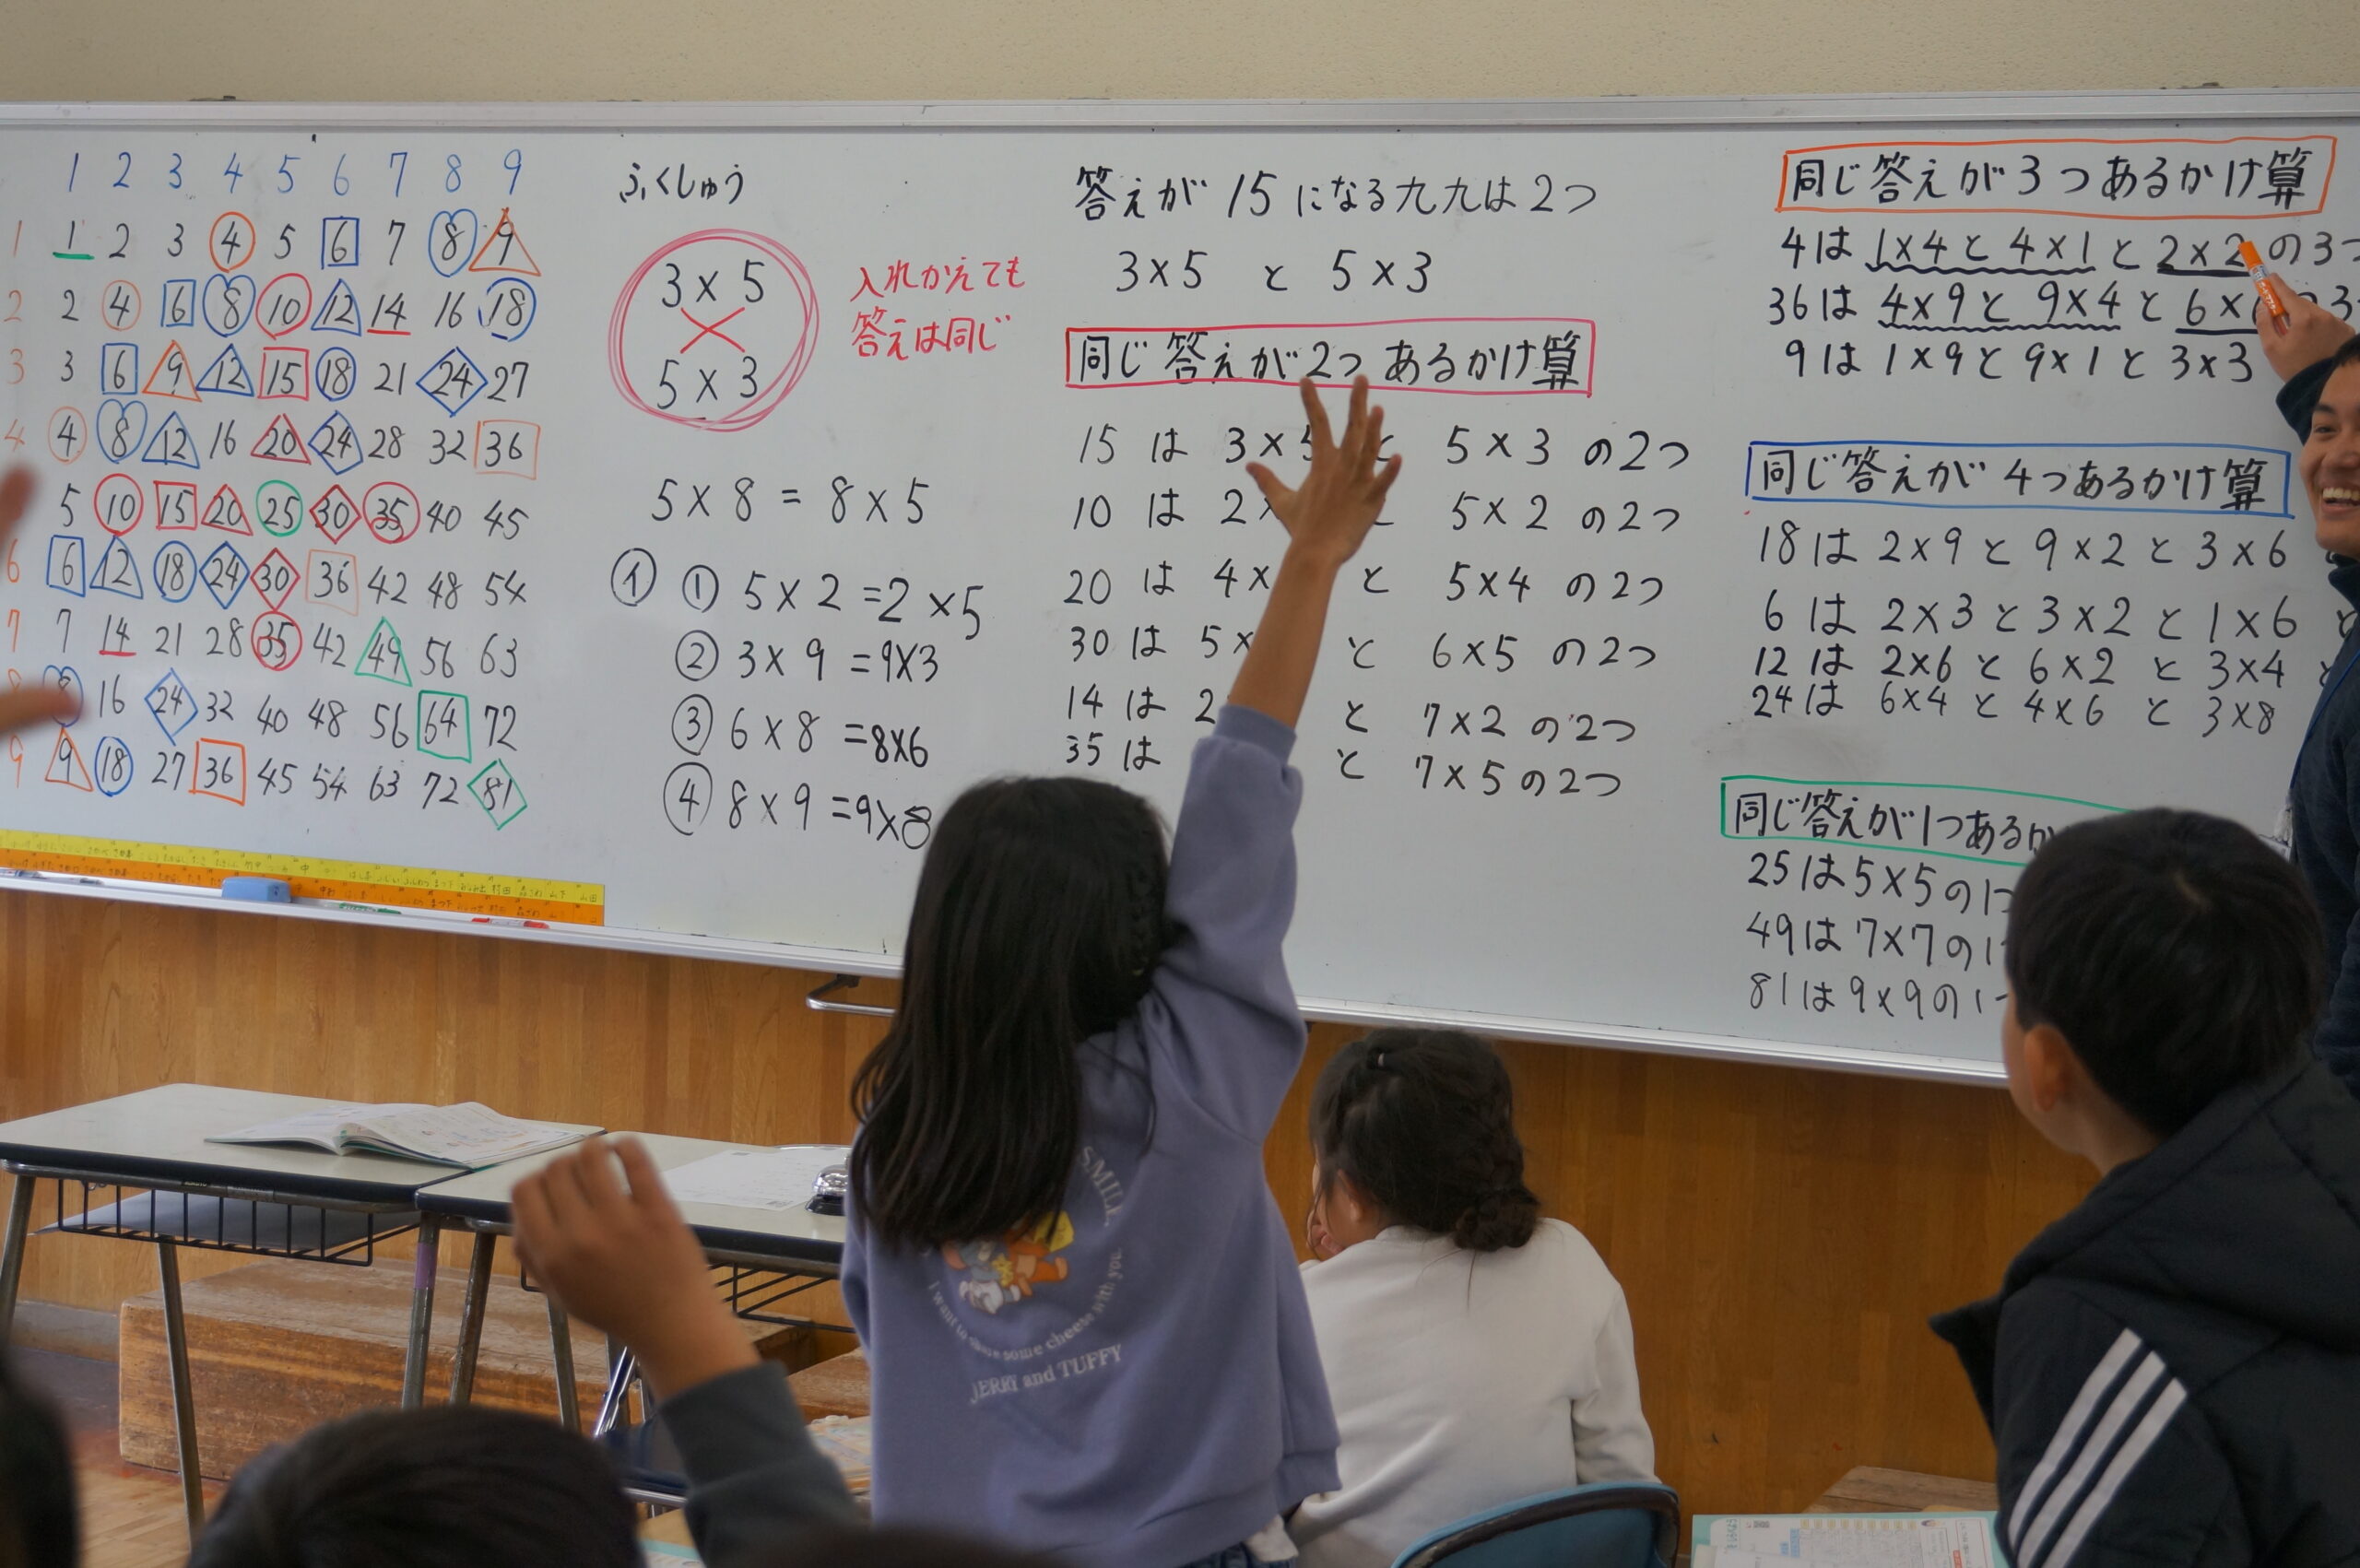 1 2 3 4 5 6 7 8 9
1 1 2 3 4 5 6 7 8 9
2 2 4 6 8 10 12 14 16 18
3 3 6 9 12 15 18 21 24 27
4 4 8 12 16 20 24 28 32 36
5 10 15 20 25 30 35 40 45
6 6 12 18 24 30 36 42 48 54
7 7 14 21 28 35 42 49 56 63
8 16 24 32 40 48 56 64 72
9 9 18 27 36 45 54 63 72 81
ふくしゅう
3×5
5×3
入れかえても
答えは同じ
5×8=8×5
① ① 5×2=2×5
② 3×9=9×3
③ 6×8=8×6
④ 8×9=9×8
答えが15になる九九は2つ
3×5と5×3
同じ答えが2つあるかけ算
15は3×5と5×3の2つ
10は2×と5×2の2つ
20は4×と5×4の2つ
30は5×と6×5の2つ
14は2と7×2の2つ
35はと7×5の2つ
同じ答えが3つあるかけ算
4は1×4と4×1と2×2の3つ
36は4×9と9×4と6×の3
9は1×9と9×1と3×3
同じ答えが4つあるかけ算
18は2×9と9×2と3×6
6は2×3と3×2と1×6と
12は2×6と6×2と3×4と
24は6×4と4×6と3×8
同じ答えが1つあるか
25は5×5の1つ
49は7×7の1
81は9×9の1
SMILE
I want to share some cheese with you.
JERRY and TUFFY